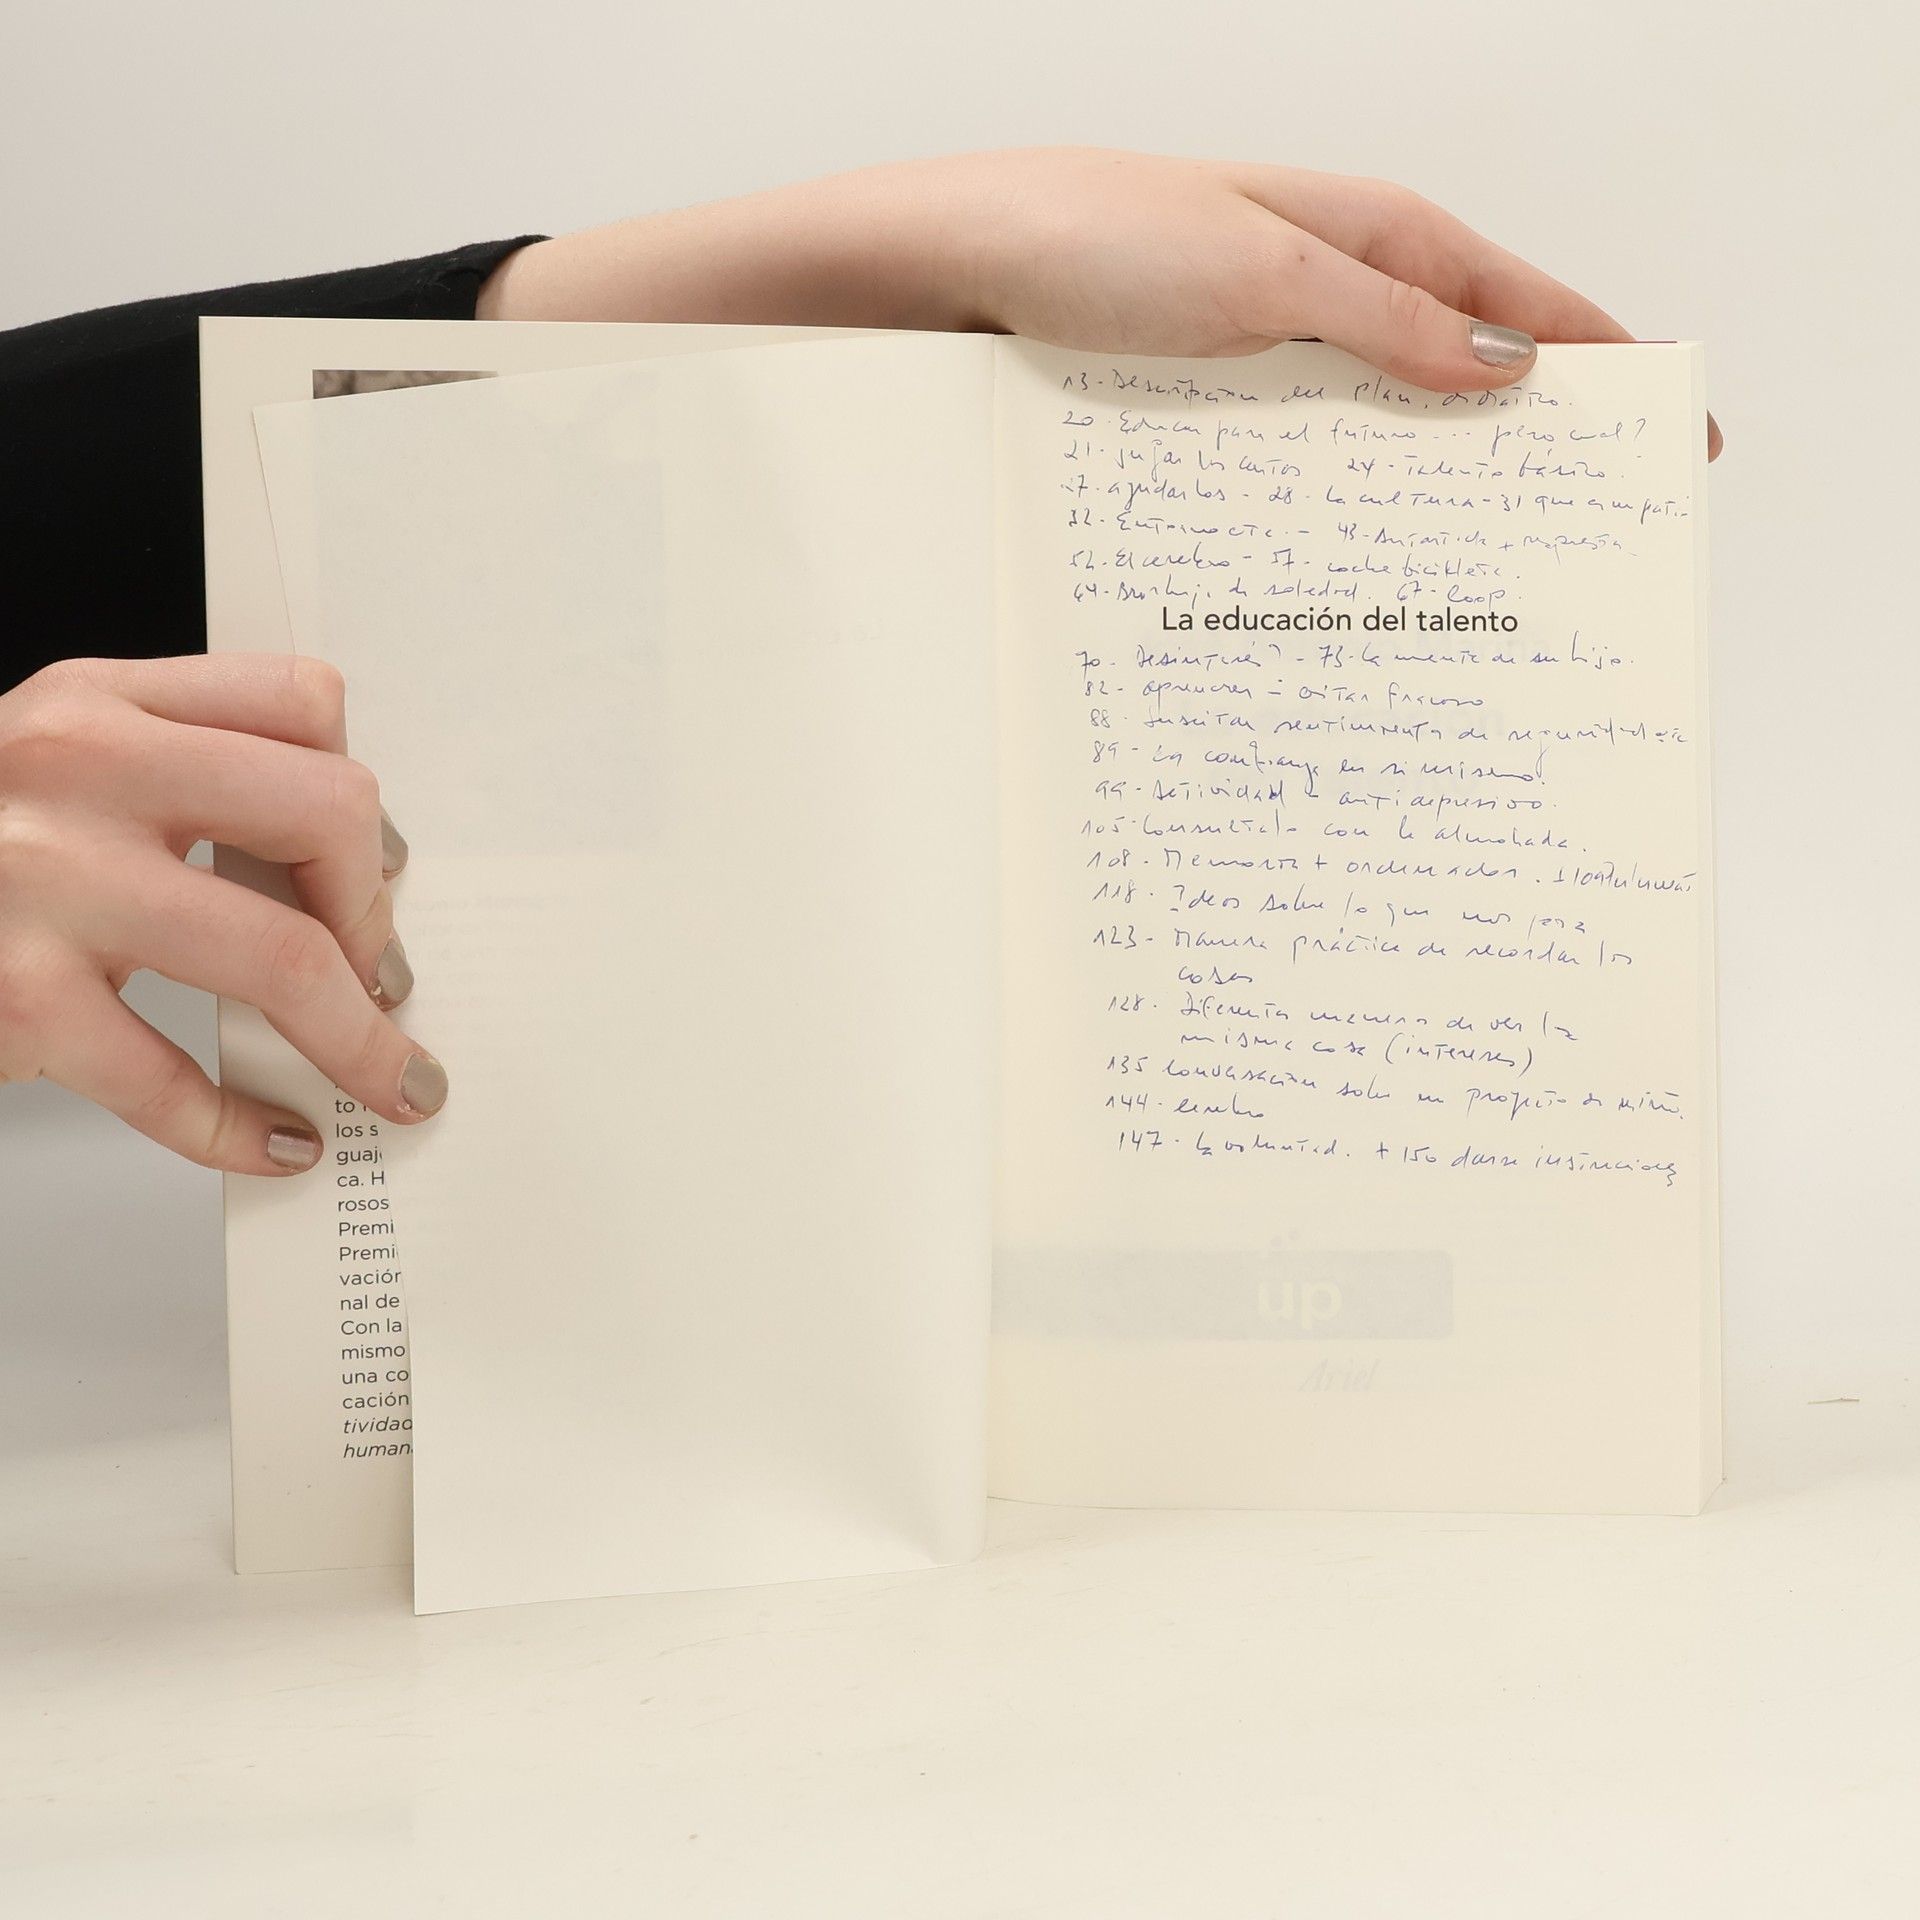 to
los s
guaj
ca. H
rosos
Premi
Premi
vación
nal de
Con la
mismo
una co
cación
tividad
human
13- Descripcion del plan, didactico.
20- Educar para el futuro ... pero cual?
21- jugar los 24- talento básico.
27- ayudarlos - 28- la cultura - 31 que
32- Entorno etc. - 43- Antartida + respuesta
52- El cerebro - 57- coche bicikleta.
64- Burbuja de soledad. 67- Loop.
La educación del talento
70- Desinterés? - 73- la mente de su hijo.
82- aprender = evitar fracaso
88- Suscitar sentimiento de seguridad etc
89- La confianza en si mismo.
99- Actividad = antidepresivo.
105- Consultalo con la almohada.
108- Memoria + ordenador.
118- Ideas sobre lo que nos pasa
123- Manera práctica de recordar las
cosas
128- Diferentes maneras de ver la
misma cosa (intereses)
135 Conversación sobre un proyecto de
144- Cerebro
147- La voluntad. + 150 darse instrucciones
up
Ariel